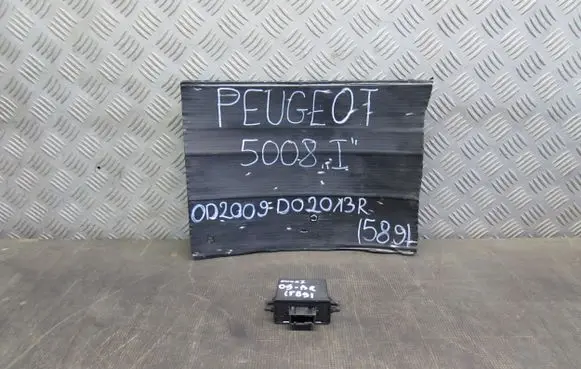 PEUGEOT
5008 „I"
OD2009-DO2013R
(589)
09-13R
(589)